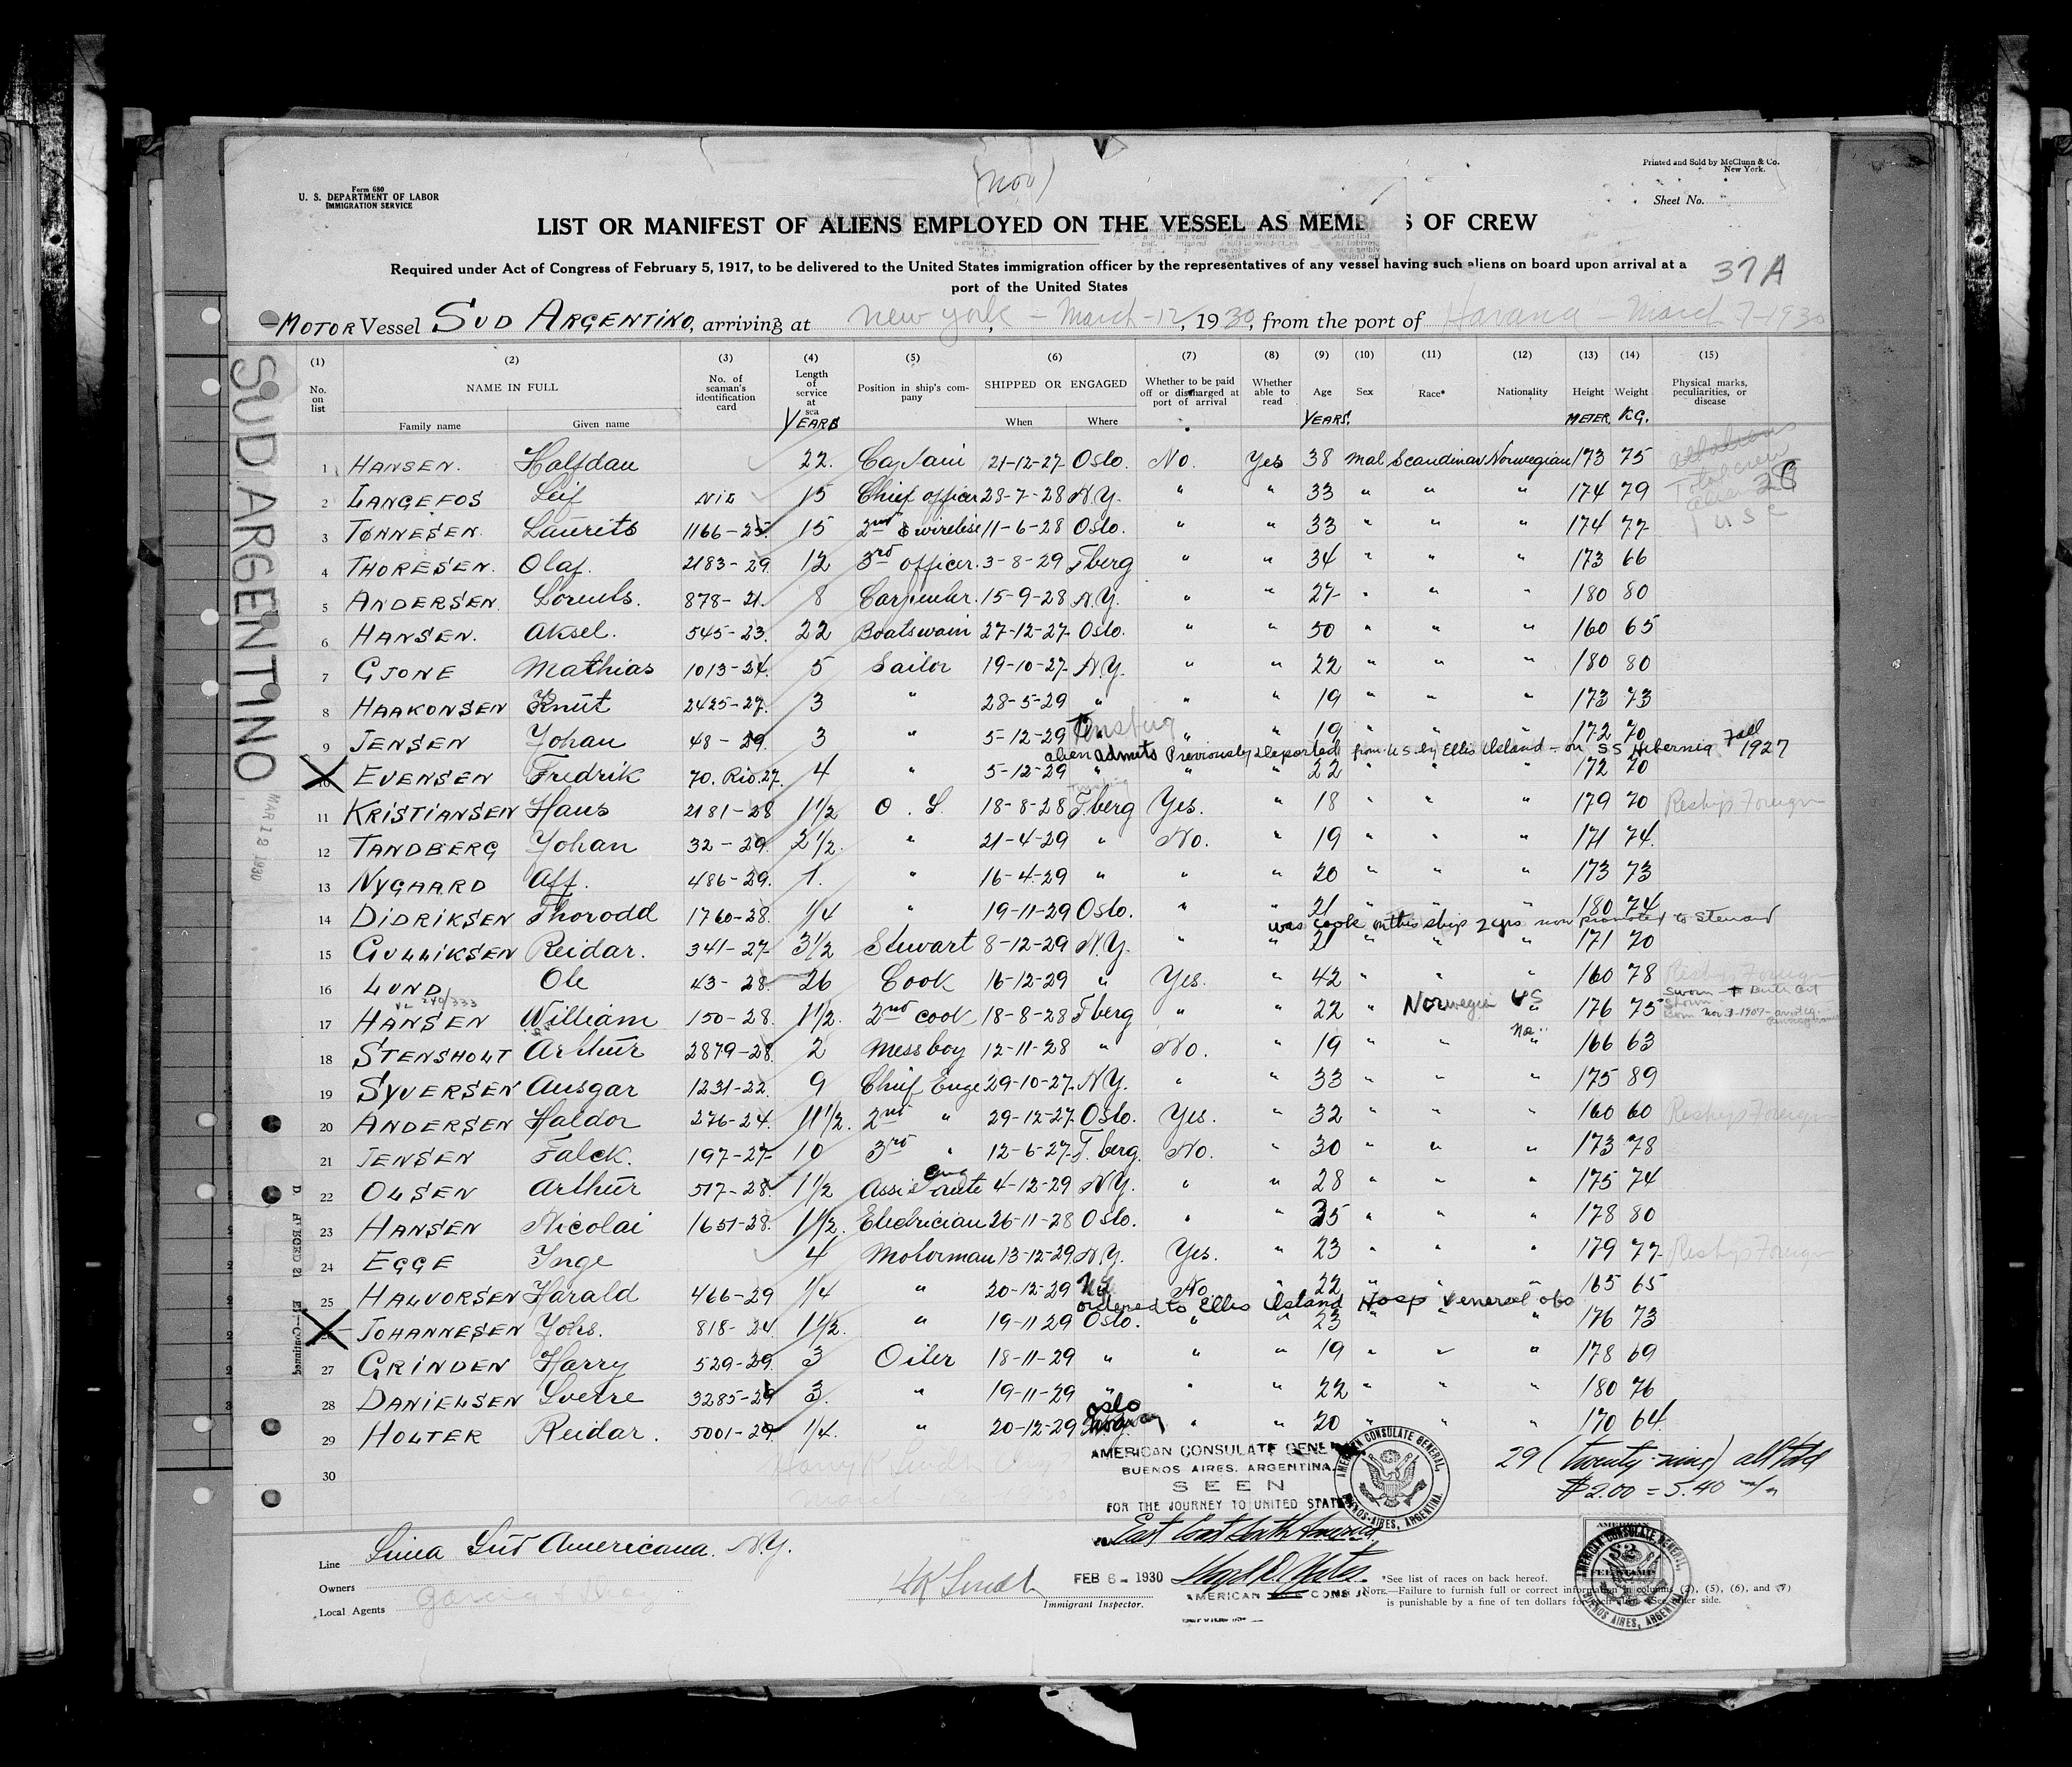 (Nov)
Printed and Sold by McClunn & Co.
New York.
Form 680
U. S. DEPARTMENT OF LABOR
IMMIGRATION SERVICE
Sheet No.
LIST OR MANIFEST OF ALIENS EMPLOYED ON THE VESSEL AS MEMB S OF CREW
Required under Act of Congress of February 5, 1917, to be delivered to the United States immigration officer by the representatives of any vessel having such aliens on board upon arrival at a
port of the United States
37 A
MOTOR Vessel SUD ARGENTINO, arriving at New York - March - 12, 1930, from the port of Havana - March 7-1930
(1) (2) (3) (4) (5) (6) (7) (8) (9) (10) (11) (12) (13) (14) (15)
No. on list NAME IN FULL No. of seaman's identification card Length of service at sea Position in ship's company SHIPPED OR ENGAGED Whether to be paid off or discharged at port of arrival Whether able to read Age Sex Race* Nationality Height Weight Physical marks, peculiarities, or disease
Family name Given name YEARS When Where YEARS. METER. KG.
1 HANSEN. Halfdan 22. Captain 21-12-27 Oslo. No. Yes 38 Mal Scandinav Norwegian 173 75
2 LANGEFOS Leif NIL 15 Chief officer 28-7-28 N.Y. " " 33 " " " 174 79
Total crew 28
3 TØNNESEN. Laurits 1166-25. 15 2nd & wireless 11-6-28 Oslo. " " 33 " " " 174 77
1 USC
4 THORESEN. Olaf. 2183-29. 12 3rd officer. 3-8-29 Tberg " " 34 " " " 173 66
5 ANDERSEN. Lorents. 878-21. 8 Carpenter. 15-9-28 N.Y. " " 27 " " " 180 80
6 HANSEN. Aksel. 545-23. 22 Boatswain 27-12-27 Oslo. " " 50 " " " 160 65
7 GJONE Mathias 1013-24. 5 Sailor 19-10-27 N.Y. " " 22 " " " 180 80
8 HAAKONSEN Knut 2425-27. 3 " 28-5-29 " " " 19 " " " 173 73
9 JENSEN Johan 48-29. 3 " 5-12-29 Tönsberg " " 19 " " " 172 70
alien admits Previously Deported from U.S. by Ellis Island - on SS Hibernia Fall 1927
10 EVENSEN Fredrik 70. Rio. 27. 4 " 5-12-29 " " " 22 " " " 172 70
11 KRISTIANSEN Hans 2181-28 1 1/2 O. S. 18-8-28 Tberg Yes. " 18 " " " 179 70 Reship Foreign
12 TANDBERG Johan 32-29. 2 1/2. " 21-4-29 " No. " 19 " " " 171 74.
13 NYGAARD Alf. 486-29. 1. " 16-4-29 " " " 20 " " " 173 73
14 DIDRIKSEN Thorodd 1760-28. 1/4 " 19-11-29 Oslo. " " 21 " " " 180 74
was cook on this ship 2 yrs now promoted to Steward
15 GULLIKSEN Reidar. 341-27 3 1/2 Stewart 8-12-29 N.Y. " " 21 " " " 171 70
16 LUND Ole 43-28. 26 Cook 16-12-29 " Yes. " 42 " " " 160 78 Reship Foreign
17 HANSEN William 150-28. 1 1/2. 2nd cook 18-8-28 Tberg " " 22 " Norwegian US 176 75
18 STENSHOLT Arthur 2879-28. 2 Messboy 12-11-28 " No. " 19 " " No. 166 63
19 SYVERSEN Ansgar 1231-22 9 Chief Enge 29-10-27 N.Y. " " 33 " " " 175 89
20 ANDERSEN Haldor 276-24. 11 1/2. 2nd " 29-12-27 Oslo. Yes. " 32 " " " 160 60 Reship Foreign
21 JENSEN Falck. 197-27 10 3rd " 12-6-27 T.berg. No. " 30 " " " 173 78
22 OLSEN Arthur 517-28. 1 1/2 Assistante eng 4-12-29 N.Y. " " 28 " " " 175 74
23 HANSEN Nicolai 1651-28. 1 1/2. Eledrician 26-11-28 Oslo. " " 35 " " " 178 80
24 EGGE Inge 4 Motorman 13-12-29 N.Y. Yes. " 23 " " " 179 77 Reship Foreign
25 HALVORSEN Harald 466-29 1/4 " 20-12-29 N.Y. No. " 22 " " " 165 65
ordered to Ellis Island Hosp Venereal obs
JOHANNESEN Johs. 818-24 1 1/2. " 19-11-29 Oslo. " " 23 " " " 176 73
27 GRINDEN Harry 529-29. 3 Oiler 18-11-29 " " " 19 " " " 178 69
28 DANIELSEN Sverre 3285-29 3. " 19-11-29 " " " 22 " " " 180 76
29 HOLTER Reidar. 5001-29. 1/4. " 20-12-29 Oslo Norway " " 20 " " " 170 64.
30
29 (Twenty-nine) all told
$2.00 = 5.40 m/n
AMERICAN CONSULATE GENERAL
BUENOS AIRES, ARGENTINA.
SEEN
FOR THE JOURNEY TO UNITED STATES
East Coast South America
AMERICAN CONSULATE GENERAL, BUENOS-AIRES, ARGENTINA.
Line Linea Sud Americana. N.Y.
Owners
Local Agents Garcia & Diaz
Immigrant Inspector.
FEB 6 - 1930
AMERICAN CONSUL
*See list of races on back hereof.
NOTE.—Failure to furnish full or correct information in columns (2), (5), (6), and (7)
is punishable by a fine of ten dollars for each alien. See other side.
AMERICAN CONSULATE GENERAL, BUENOS AIRES, ARGENTINA.
$2
FEE STAMP
SUD ARGENTINO
MAR 12 1930